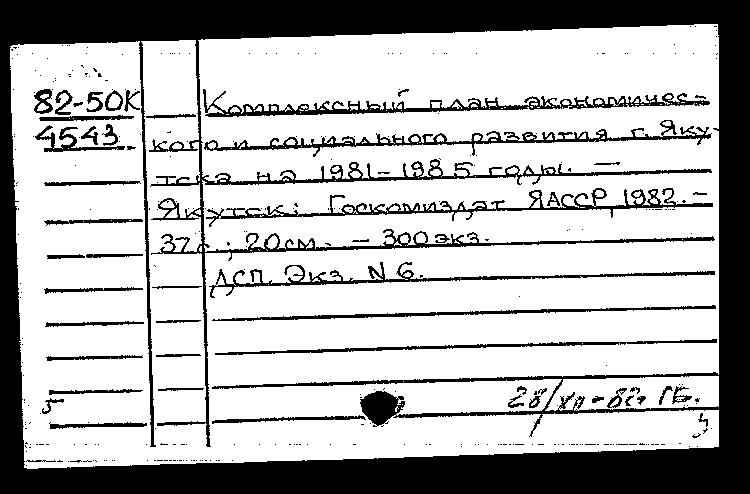 82-50К Комплексный план экономичес-
4543 кого и социального развития г. Яку-
тска на 1981-1985 годы. —
Якутск: Госкомиздат ЯАССР, 1982. -
37с.; 20см. - 300экз.
ДСП. Экз. N 6.
28/XII-82г ГБ.
5